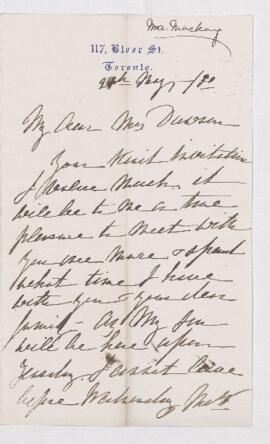 Mrs. Mackay
117, Bloor St.
Toronto.
May /80
My dear Mrs Dawson
Your kind invitation
I value much, it
will be to me a true
pleasure to meet with
you once more, & spend
what time I have
with you & your dear
family - As My Son
will be here upon
Tuesday. I cannot leave
before Wednesday